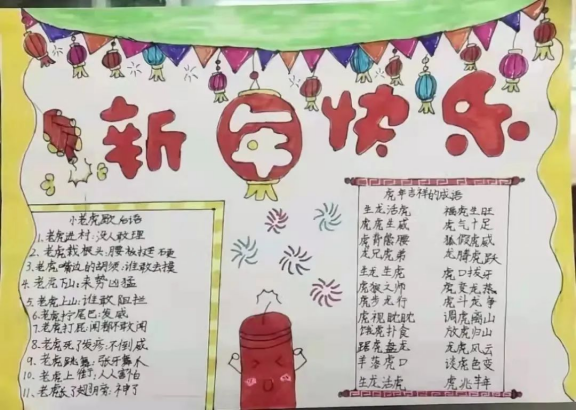 新年快乐
小老虎歇后语
1.老虎进村:没人敢理
2.老虎找
3.老虎嘴边的胡须:谁敢去摸
4.老虎下山:来势凶猛
5.老虎上山:谁敢阻拦
6.老虎拧尾巴:发威
7.老虎打屁:闻都不敢闻
8.老虎死了发疹:不倒威
9.老虎跳舞:张牙舞爪
10.老虎上街:人人害怕
11.老虎长了翅膀:神了
虎年吉祥的成语
生龙活虎 福虎生旺
虎虎生威 虎气十足
虎背熊腰 狐假虎威
龙兄虎弟 龙腾虎跃
生龙生虎 虎口拔牙
虎狼之师 虎变龙蒸
虎步龙行 虎斗龙争
虎视眈眈 调虎离山
饿虎扑食 放虎归山
踞虎盘龙 龙虎风云
羊落虎口 谈虎色变
生龙活虎 虎兆丰年